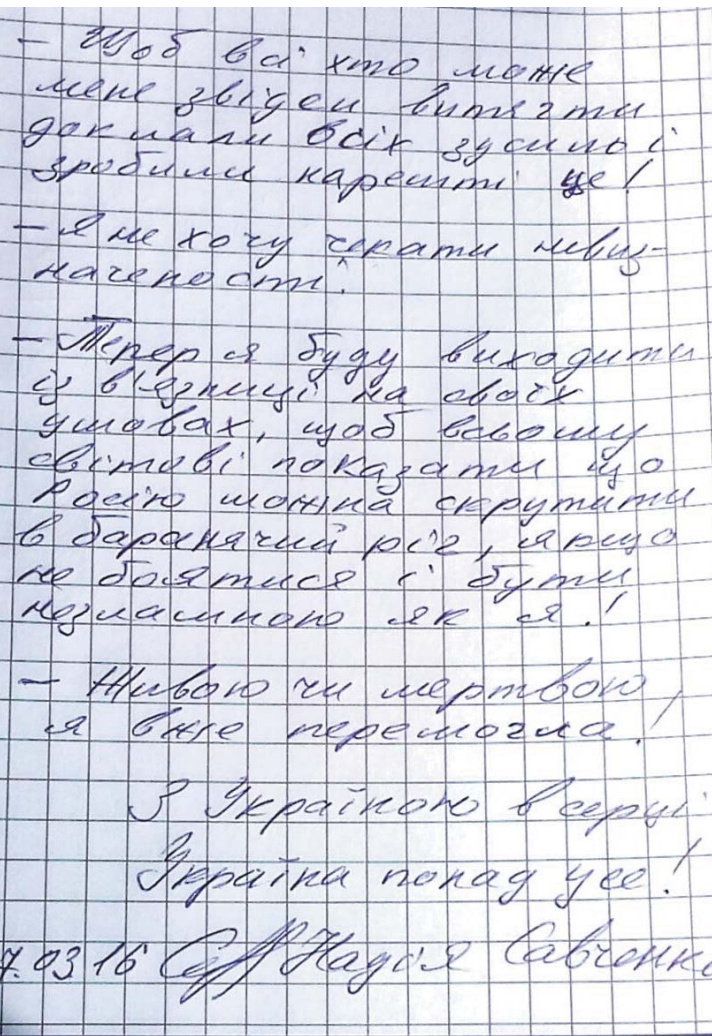 - Щоб всі хто може
мене звідси витягти
доклали всіх зусиль і
зробили нарешті це!
- Я не хочу чекати невиз-
наченості!
- Тепер я буду виходити
із в'язниці на своїх
умовах, щоб всьому
світові показати що
Росію можна скрутити
в баранячий ріг, якщо
не боятися і бути
незламною як я!
- Живою чи мертвою,
я вже перемогла!
З Україною в серці
Україна понад усе!
7.03 16 Надія Савченко